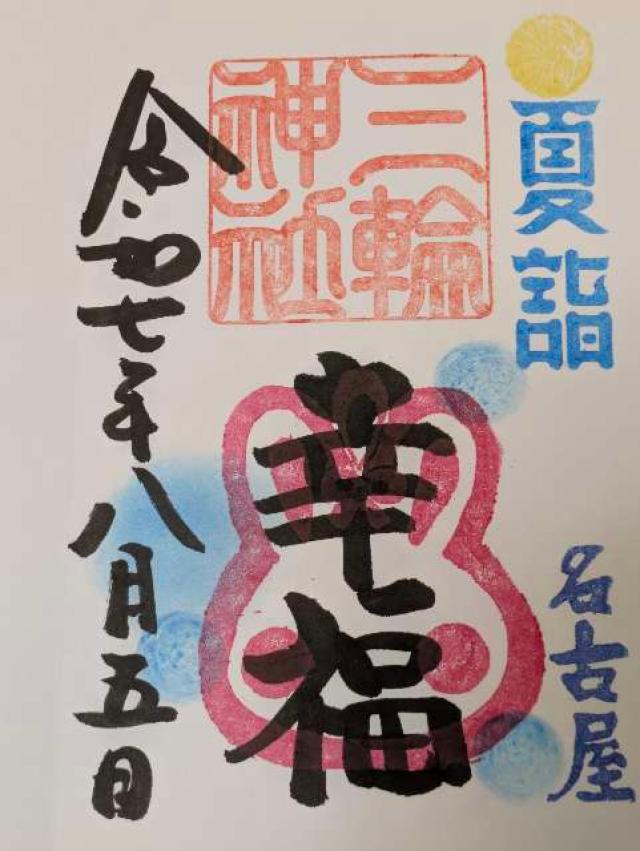 夏詣
名古屋
三輪
神社
幸福
令和七年八月五日